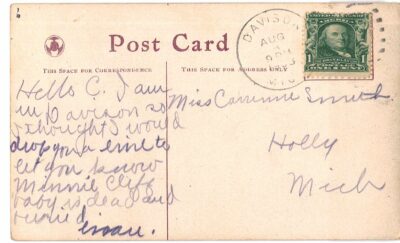 Post Card
THIS SPACE FOR CORRESPONDENCE
THIS SPACE FOR ADDRESS ONLY
DAVISON
AUG
MICH
1
Hello C. I am
in Davison so
I thought I would
drop you a line to
let you know
Minnie Clifs
baby is dead and
buried
Miss Corrinne Smith
Holly
Mich